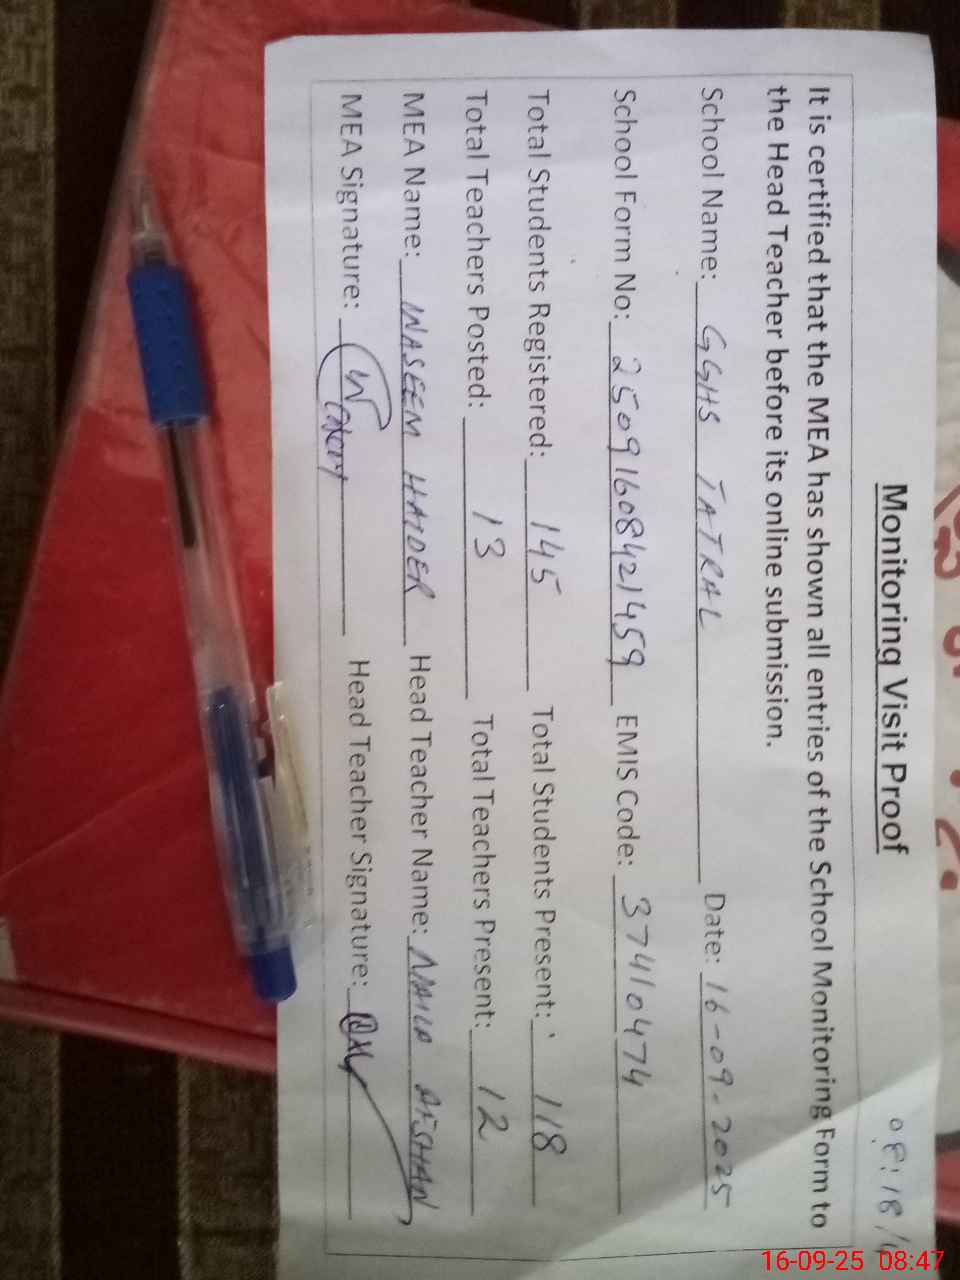 08:18
Monitoring Visit Proof
It is certified that the MEA has shown all entries of the School Monitoring Form to
the Head Teacher before its online submission.
School Name: GGHS TATRAL Date: 16-09-2025
School Form No: 25091608421459 EMIS Code: 37410474
Total Students Registered: 145 Total Students Present: 118
Total Teachers Posted: 13 Total Teachers Present: 12
MEA Name: WASEEM HAIDER Head Teacher Name: NAILA AFSHAN
MEA Signature: Head Teacher Signature:
16-09-25 08:47